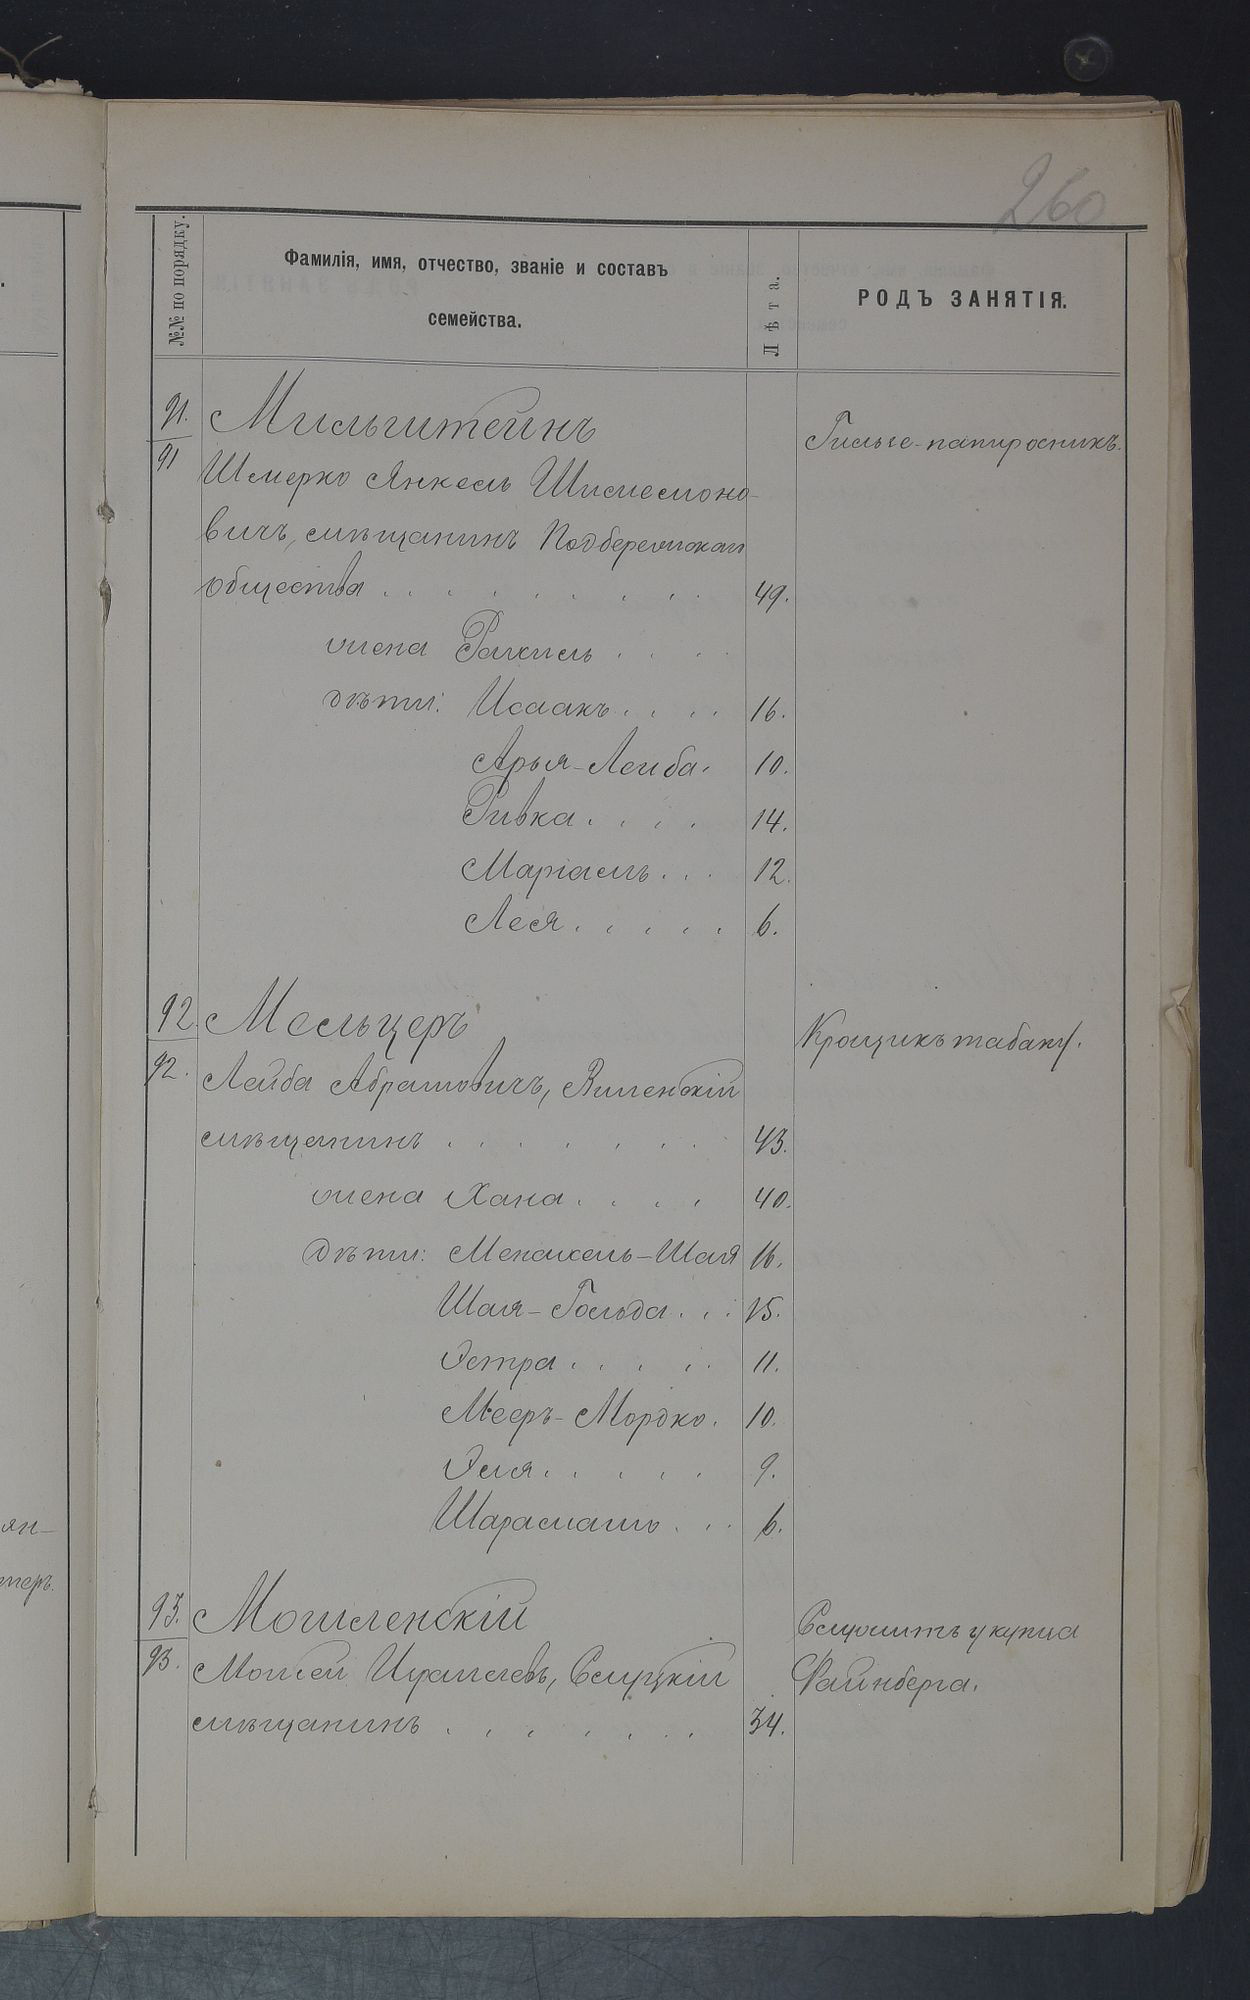 260
№№ по порядку.
Фамилія, имя, отчество, званіе и составъ
семейства.
Лѣта.
РОДЪ ЗАНЯТІЯ.
91. Мильштейнъ Гильзе-папиросникъ.
91
Шмерко Янкель Шлемоно-
вичъ, мѣщанинъ Подберезскаго
общества . . . . . . . . . 49.
жена Рахиль . . . .
дѣти: Исаакъ . . . . 16.
Арья-Лейба. 10.
Ривка . . . . 14.
Маріамъ . . . 12.
Лея . . . . . 6.
92. Мельцеръ Крошикъ табаку.
92.
Лейба Абрамовичъ, Виленскій
мѣщанинъ . . . . . . . 43.
жена Хана . . . . 40.
дѣти: Менахель-Шая 16.
Шая-Гольда . . . 15.
Эстра . . . . . 11.
Меєръ-Мордко. 10.
Эля . . . . . 9.
. . . 6.
93. Могиленскій Служитъ у купца
93. Моисей Израилевъ, Слуцкій Файнберга.
мѣщанинъ . . . . . . . 34.
ян-
теръ.